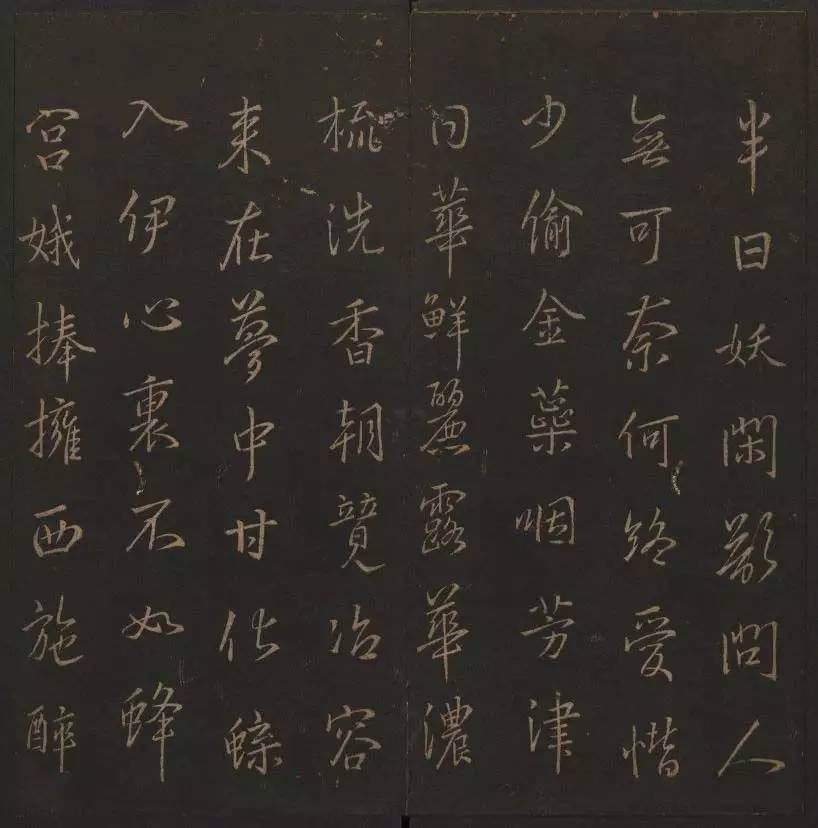 半日妖閑問人
無可奈何終愛惜
少偷金蘂咽芳津
日華鮮麗露華濃
梳洗香朝競冶容
来在夢中甘化蝶
入伊心裏不如蜂
宮娥捧擁西施醉